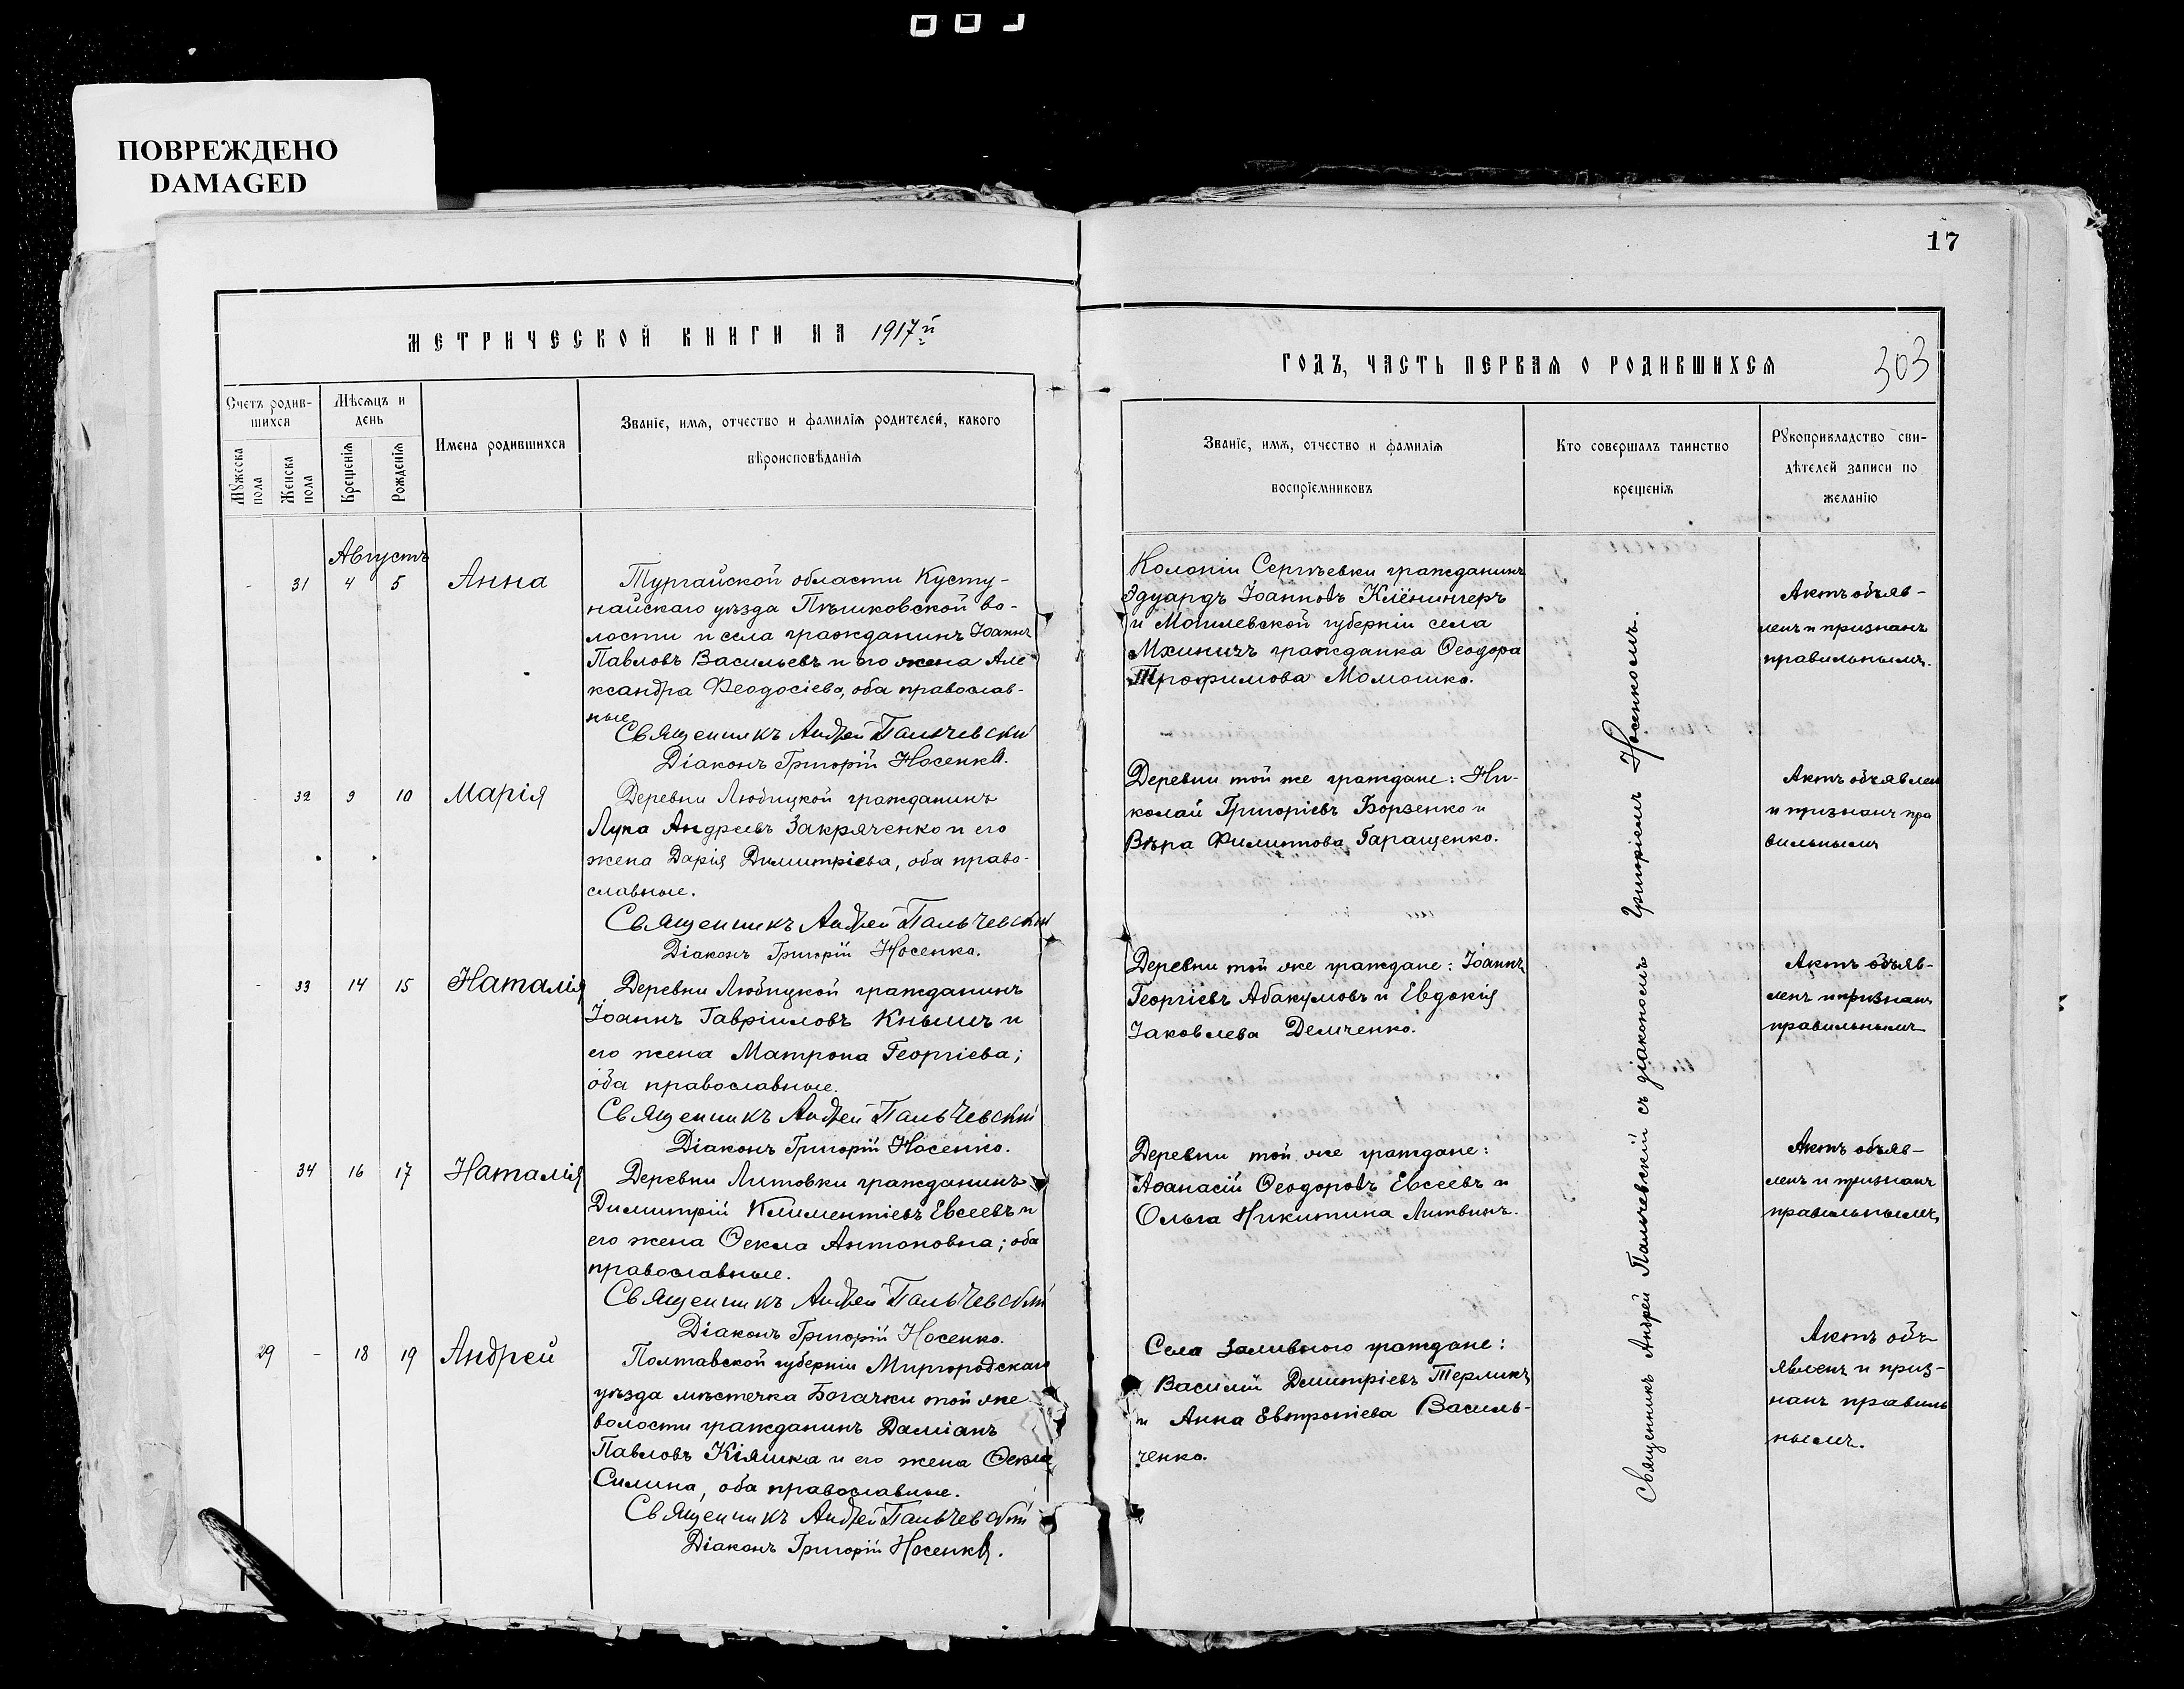 ПОВРЕЖДЕНО
DAMAGED
17
МЕТРИЧЕСКОЙ КНИГИ НА 1917й
ГОДЪ, ЧАСТЬ ПЕРВАЯ О РОДИВШИХСЯ
303
Счетъ родив-
шихся
Мужеска пола
Женска пола
Мѣсяцъ и
день
Крещенія
Рожденія
Имена родившихся
Званіе, имя, отчество и фамилія родителей, какого
вѣроисповѣданія
Званіе, имя, отчество и фамилія
воспріемниковъ
Кто совершалъ таинство
крещенія
Рукоприкладство сви-
дѣтелей записи по
желанію
Августъ
- 31 4 5 Анна
Тургайской области Кусту-
найскаго уѣзда Пѣшковской во-
лости и села гражданинъ Іоаннъ
Павловъ Васильевъ и его жена Але
ксандра Феодосіева, оба православ-
ные
Священникъ Андрей Пальчевскій
Діаконъ Григорій Носенко.
Колоніи Сергѣевки гражданинъ
Эдуардъ Іоанновъ Клёнингеръ
и Могилевской губерніи села
Мхиничъ гражданка Ѳеодора
Трофимова Момошко.
Актъ объяв-
ленъ и признанъ
правильнымъ.
- 32 9 10 Марія
Деревни Любицкой гражданинъ
Лука Андреевъ Закряченко и его
жена Дарія Димитріева, оба право-
славные.
Священникъ Андрей Пальчевскій
Діаконъ Григорій Носенко.
Деревни той же граждане: Ни-
колай Григоріевъ Борзенко и
Вѣра Филиппова Гаращенко.
Актъ объявлен
и признанъ пра
вильнымъ
- 33 14 15 Наталія
Деревни Любицкой гражданинъ
Іоаннъ Гавріиловъ Кнышъ и
его жена Матрона Георгіева;
оба православные.
Священникъ Андрей Пальчевскій
Діаконъ Григорій Носенко.
Деревни той же граждане: Іоаннъ
Георгіевъ Абакумовъ и Евдокія
Іаковлева Демченко.
Актъ объяв-
ленъ и признанъ
правильнымъ
- 34 16 17 Наталія
Деревни Литовки гражданинъ
Димитрій Климентіевъ Евсеевъ и
его жена Ѳекла Антоновна; оба
православные.
Священникъ Андрей Пальчевскій
Діаконъ Григорій Носенко.
Деревни той же граждане:
Аѳанасій Ѳеодоровъ Евсеевъ и
Ольга Никитина Литвинъ.
Актъ объяв-
ленъ и признанъ
правильнымъ,
29 - 18 19 Андрей
Полтавской губерніи Миргородскаго
уѣзда мѣстечка Богачки той же
волости гражданинъ Даміанъ
Павловъ Кіяшка и его жена Ѳекла
Силина, оба православные.
Священникъ Андрей Пальчевскій
Діаконъ Григорій Носенко.
Села Заливного граждане:
Василій Димитріевъ Терликъ
и Анна Евтропіева Василь-
ченко.
Актъ объ-
явленъ и приз-
нанъ правиль
нымъ.
Священникъ Андрей Пальчевскій съ діакономъ Григоріемъ Носенкомъ.